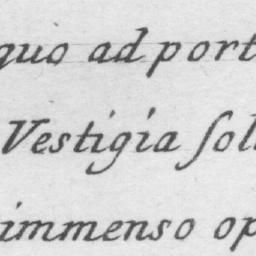 quo ad port
Vestigia ſoll
immenso op